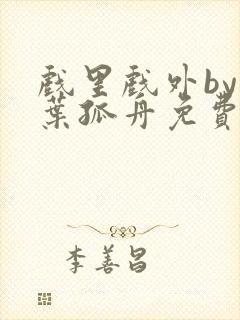 戲里戲外by
葉孤舟免費
李善昌